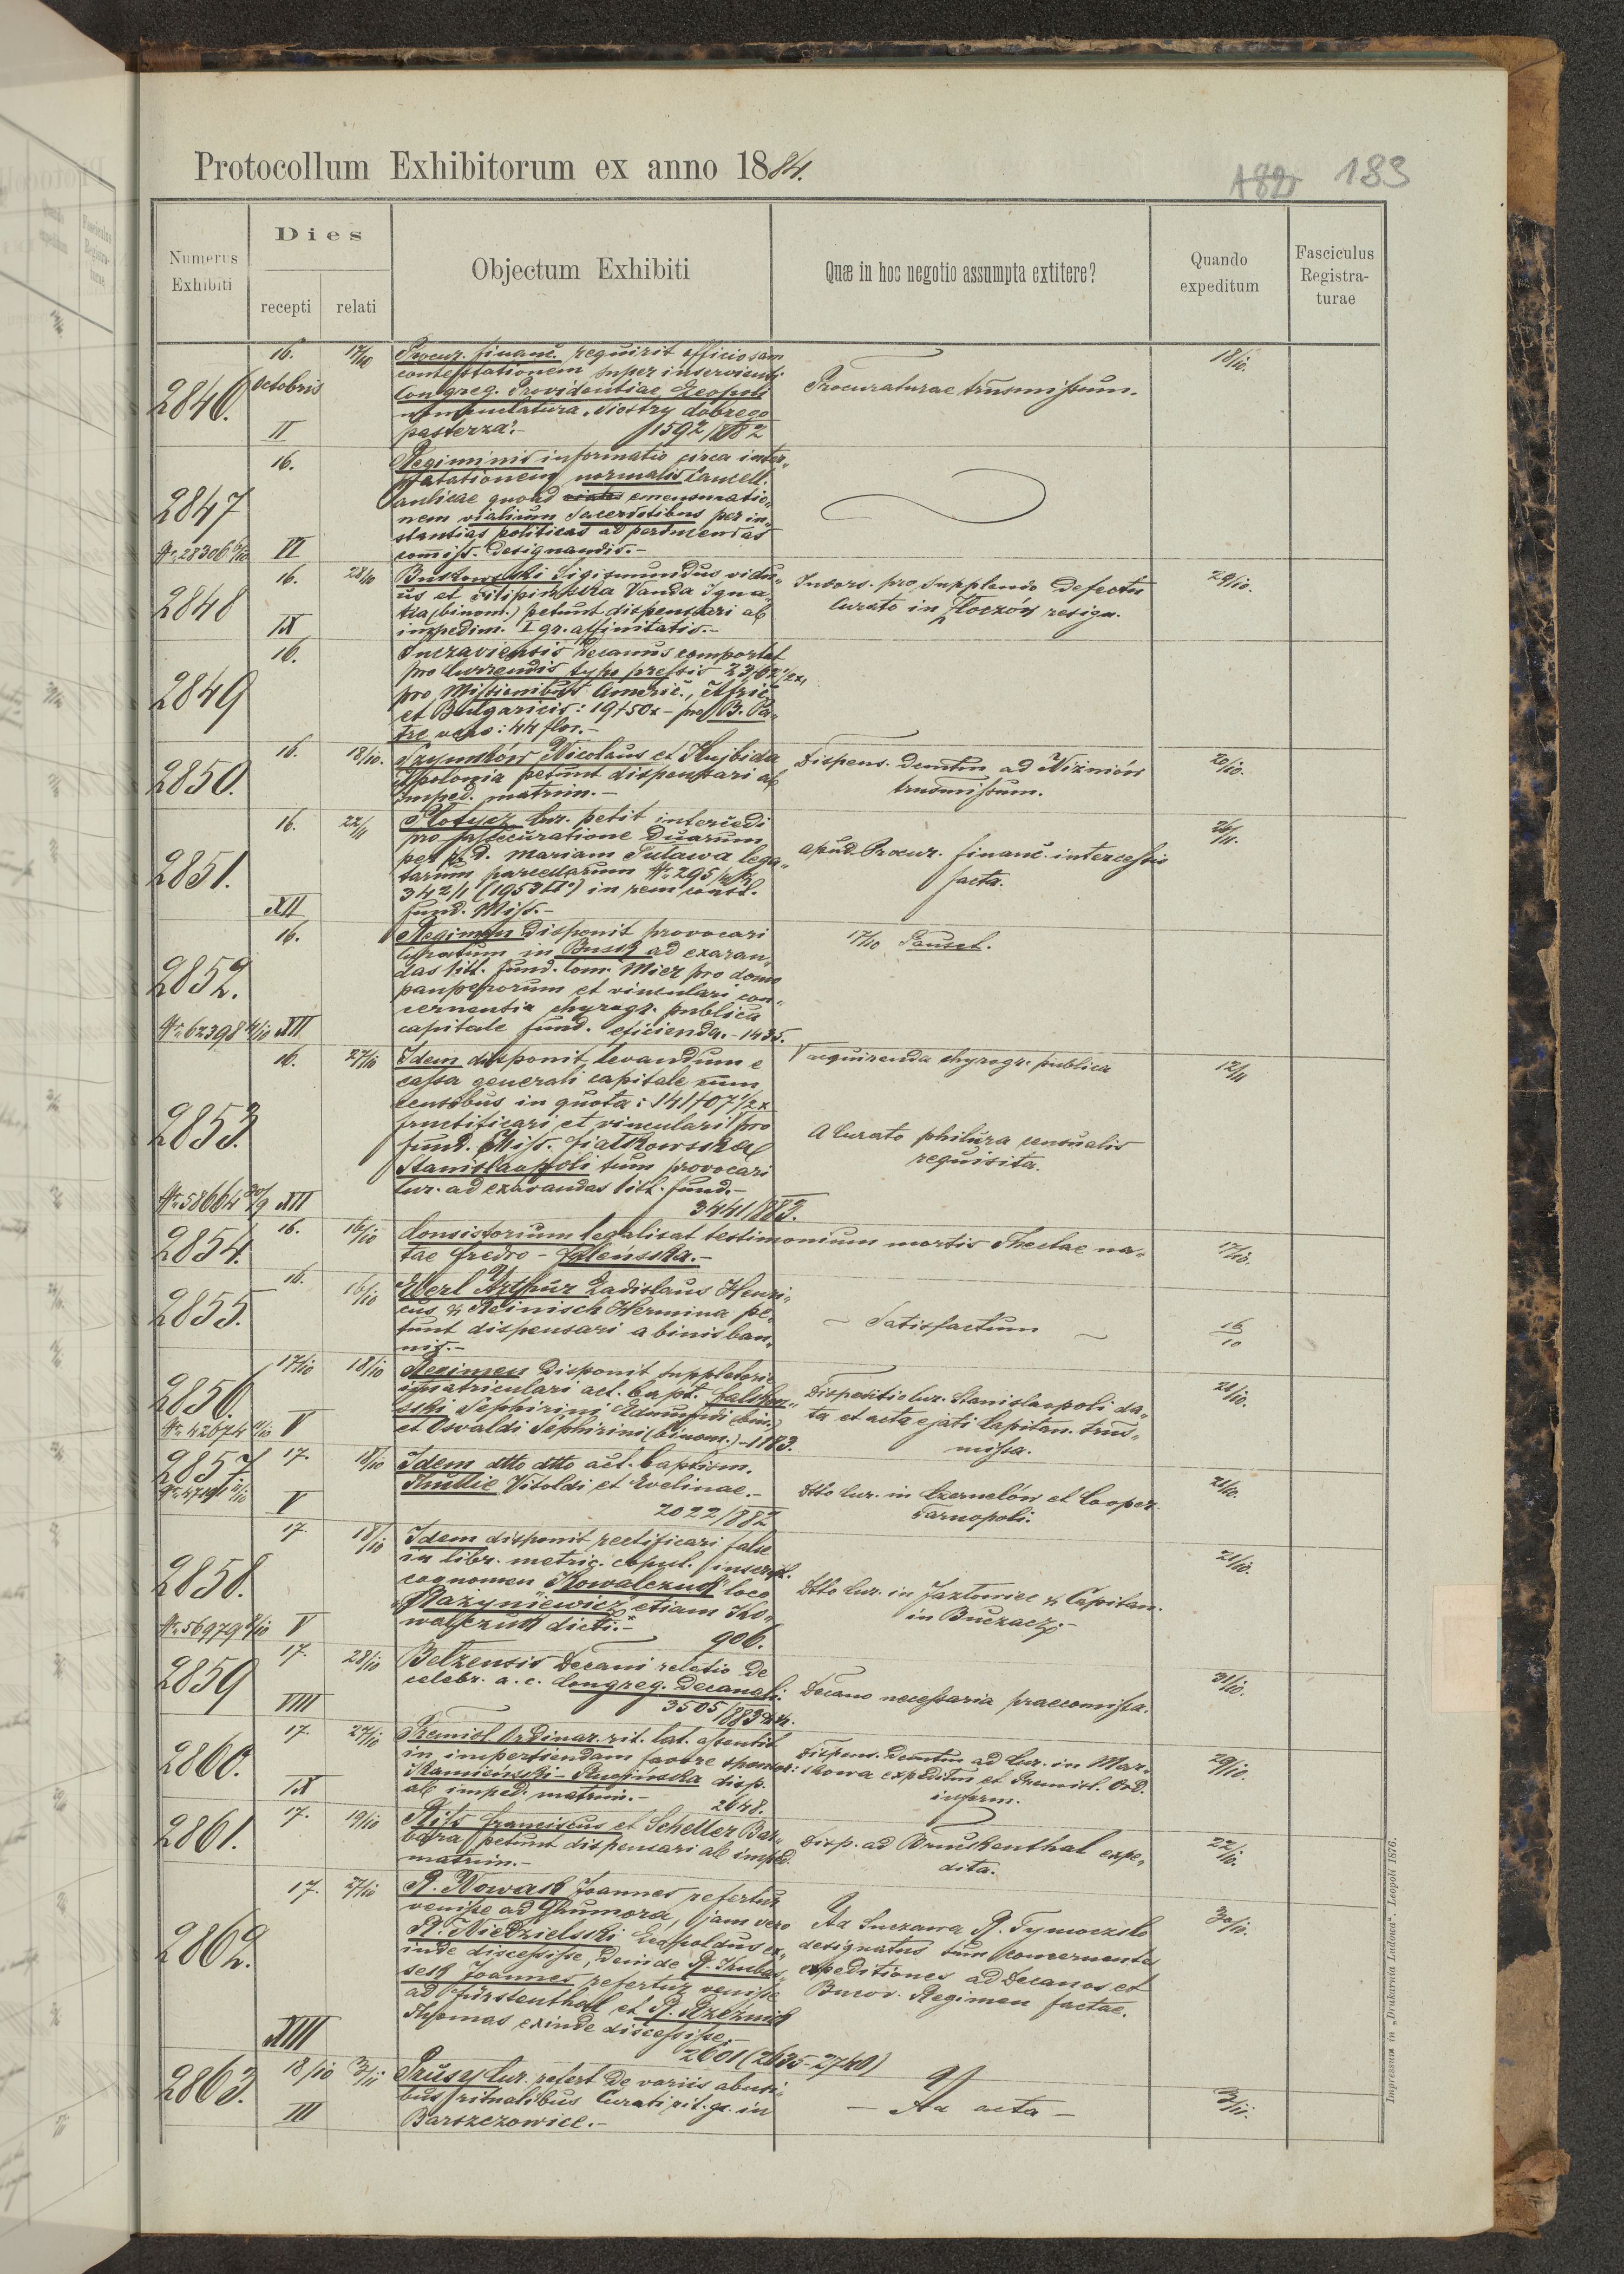 Protocollum Exhibitorum ex anno 1884.
182 183
Numerus Exhibiti
Dies
recepti
relati
Objectum Exhibiti
Quæ in hoc negotio assumpta extitere?
Quando expeditum
Fasciculus Registra-turae
2846.
16. Octobris
II
17/10
Procur. financ. requirit officiosam
contestationem super inservienti
Congreg. Providentiae Leopoli
nomenclatura „Siostry dobrego
pasterza“.- 1592/882
Procuraturae transmissum.
18/10.
2847
№ 28306
VI
16.
Regiminis informatio circa inter-
pretationem normalis Cancell.
aulicae quoad emensuratio-
nem vialium Sacerdotibus per in-
stantias politicas ad pertinendas
commiss. designandis.-
2848
16.
IX
28/10
Sigismundus vidu-
us et Filipinska Vanda Igna-
tia (binom.) petunt dispensari ab
impedim. I gr. affinitatis.-
Indors. pro supplendo defectu
Curato in Złoczów resign.
29/10.
2849
16.
Suczaviensis Decanus comportat
pro Currendis typo pressis
pro Missionibus Americ., Afric.
et Bulgaricis: 19f 50x - pro B. Pa-
tre vero: 44 flor.-
2850.
16.
18/10.
Szymków Nicolaus et Kujbida
Apolonia petunt dispensari ab
imped. matrim.-
Dispens. demum ad Niżniów
transmissum.
20/10.
2851.
16.
XII
22/11
Kotycz Cur. petit intercedi
pro assecuratione duarum
per p. d. Mariam Sutawa lega-
tarum parcellarum № 295
342/1 (1953□°) in rem const.
fund. Miss.-
apud Procur. financ. intercessio
facta.
26/11.
2852.
№ 62398 4/10 XII
16.
Regimen disponit provocari
Curatum in Busk ad exaran-
das litt. fund. Com. Mier pro domo
pauperorum et vinculari con-
cernentia chyrogr. publica
capitale fund. eficienda.- 1435.
17/10 Pausch.
2853.
№ 58664 20/9 XII
16.
27/10
Idem disponit levandum e
cassa generali capitale cum
censibus in quota: 141f 07 1/2x
fructificari et vinculari pro
fund. Miss. Fiałkowska
Stanislaopoli tum provocari
Cur. ad exarandas litt. fund.-
3441/883.
V acquirenda chyrogr. publica
A Curato philura censualis
requisita.
12/11
2854.
16.
16/10
Consistorium legalisat testimonium mortis Theclae na-
tae Fredro - Jgleńska.-
17/10.
2855.
16.
16/10
Werl Arthur Ladislaus Henri-
cus & Reinisch Hermina pe-
tunt dispensari a binis ban-
nis.-
- Satisfactum -
16/10
2856.
№ 42674
17/10
V
18/10
Regimen disponit suppletorie
imatriculari act. bapt. Falken-
Sephirini Edmundi (bin.)
et Osvaldi Sephirini (binom.) - 1183.
Dispositio Cur. Stanislaopoli da-
ta et acta ejati Capitan. trans-
missa.
21/10.
2857
17.
V
18/10
Idem dtto dtto act. baptism.
Thullie Vitoldi et Evelinae.-
2022/882
Dtto Cur. in Czernelów et Cooper.
Tarnopoli.
21/10.
2858.
№ 56979 8/10
17.
V
18/10
Idem disponit rectificari false
in libr. metric. copul. insert.
cognomen „Kowalczuk“ loco
„Mazyniewicz“ etiam Ko-
walczuk dicti.-
906.
Dtto Cur. in Jazłowiec & Capitan.
in Buczacz.-
21/10.
2859
17.
VIII
28/10
Belzensis Decani relatio de
celebr. a. c. Congreg. decanali.
3505/883
Decano necessaria praecomissa.
31/10.
2860.
17.
IX
27/10
Premisl. Ordinar. rit. lat. assentit
in impertiendam favore sponsor:
Kamieński - disp.
ab imped. matrim.-
2648.
Dispens. demum ad Cur. in Mar-
kowa expeditum et Premisl. Ord.
inform.
29/10.
2861.
17.
19/10
Franciscus et Scheller Bar-
bara petunt dispensari ab imped.
matrim.-
Disp. ad Brückenthal expe-
dita.
22/10.
2862.
17.
XIII
27/10
R. Nowak Joannes refertur
venisse ad Ghumora, jam vero
R. Niedzielski Leopoldus ex-
inde discessisse, deinde R. Kuba-
sek Joannes refertur venisse
ad Fürstenthal et R. Rzeźnik
Thomas exinde discessisse.-
2601 (2635-2740)
Ad Suczawa R. Tymoczko
designatus tum concernentes
expeditiones ad Decanos et
Bucov. Regimen factae.
30/10.
2863.
18/10
III
3/11
Prusy Cur. refert de variis abusi-
bus ritualibus Curati rit. gr. in
Barszczowice.-
- Ad acta -
3/11.
Impressum in „Drukarnia Ludowa“. Leopoli 1876.